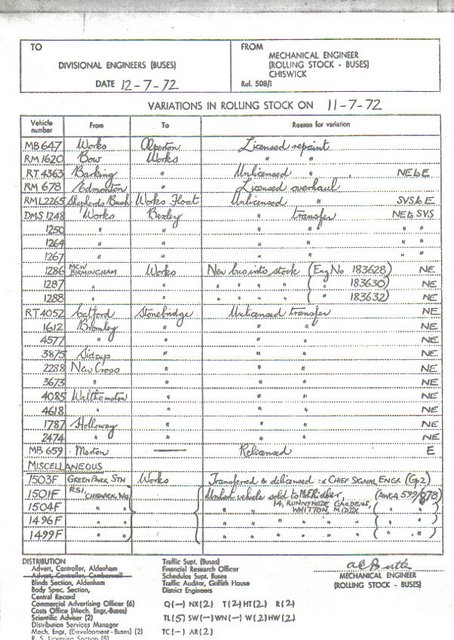 TO
DIVISIONAL ENGINEERS (BUSES)
DATE 12-7-72
FROM
MECHANICAL ENGINEER
(ROLLING STOCK - BUSES)
CHISWICK
Ref. 508/1
VARIATIONS IN ROLLING STOCK ON 11-7-72
Vehicle number From To Reason for variation
MB 647 Works Alperton Licensed repaint
RM 1620 Bow Works " "
RT 4363 Barking " Unlicensed " NE & E
RM 678 Edmonton " Licensed overhaul
RML 2265 Shepherds Bush Works Float Unlicensed " SVS & E
DMS 1248 Works Bexley " transfer NE & SVS
1250 " " " " " "
1264 " " " " " "
1267 " " " " " "
1286 MCW BIRMINGHAM Works New bus into stock (Eng No 183628) NE
1287 " " " " " " ( " 183630) NE
1288 " " " " " " ( " 183632) NE
RT 4052 Catford Stonebridge Unlicensed transfer NE
1612 Bromley " " " NE
4577 " " " " NE
3875 Sidcup " " " NE
2288 New Cross " " " NE
3673 " " " " NE
4085 Walthamstow " " " NE
4618 " " " " NE
1787 Holloway " " " NE
2474 " " " " NE
MB 659 Merton — Relicensed E
MISCELLANEOUS
1503F GREEN PARK STN Works Transferred & delicensed CHIEF SIGNAL ENGR (Gp2)
1501F RSI, CHISWICK, vehicle sold to
1504F " " 14, RUNNYMEDE GARDENS, WHITTON, MIDDX
1496F " "
1499F " "
DISTRIBUTION
Advert, Controller, Aldenham
Advert, Controller, Camberwell
Blinds Section, Aldenham
Body Spec, Section,
Central Record
Commercial Advertising Officer (6)
Costs Office (Mech. Engr.-Buses)
Scientific Adviser (2)
Distribution Services Manager
Mech. Engr, (Development - Buses) (2)
R. S. Licensing Section (8)
Traffic Supt. (Buses)
Financial Research Officer
Schedules Supt. Buses
Traffic Auditor, Griffith House
District Engineers
Q(-) NX(2) T(2) HT(2) R(2)
TL(5) SW(-) WN(-) W(2) HW(2)
TC(-) AR(2)
MECHANICAL ENGINEER
(ROLLING STOCK - BUSES)